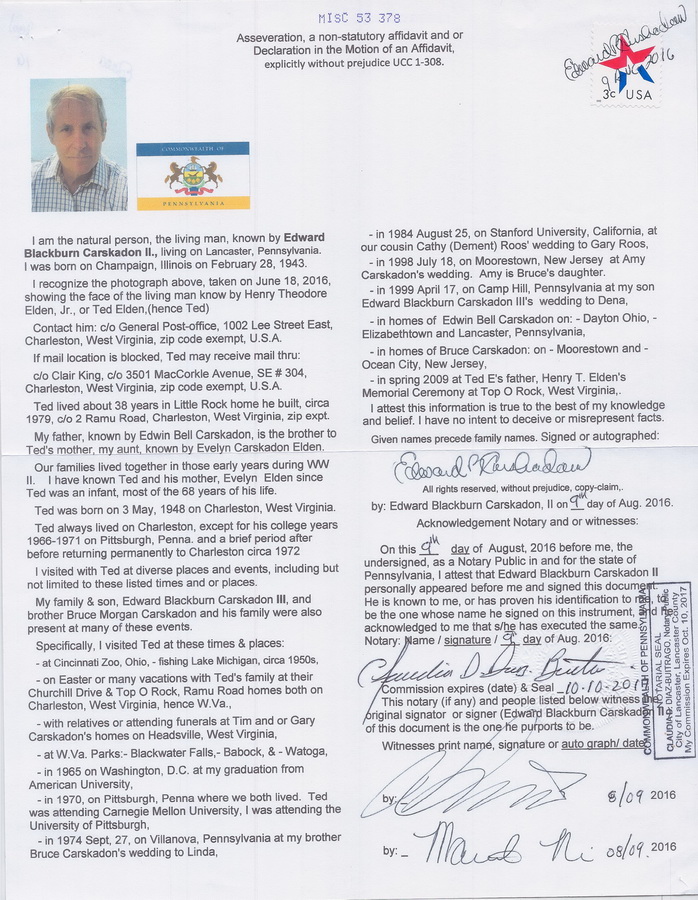 MISC 53 378
Asseveration, a non-statutory affidavit and or
Declaration in the Motion of an Affidavit,
explicitly without prejudice UCC 1-308.
Edward B Carskadon
9 AUG 2016
3c USA
COMMONWEALTH OF
PENNSYLVANIA
I am the natural person, the living man, known by Edward
Blackburn Carskadon II., living on Lancaster, Pennsylvania.
I was born on Champaign, Illinois on February 28, 1943.
I recognize the photograph above, taken on June 18, 2016,
showing the face of the living man know by Henry Theodore
Elden, Jr., or Ted Elden,(hence Ted)
Contact him: c/o General Post-office, 1002 Lee Street East,
Charleston, West Virginia, zip code exempt, U.S.A.
If mail location is blocked, Ted may receive mail thru:
c/o Clair King, c/o 3501 MacCorkle Avenue, SE # 304,
Charleston, West Virginia, zip code exempt, U.S.A.
Ted lived about 38 years in Little Rock home he built, circa
1979, c/o 2 Ramu Road, Charleston, West Virginia, zip expt.
My father, known by Edwin Bell Carskadon, is the brother to
Ted's mother, my aunt, known by Evelyn Carskadon Elden.
Our families lived together in those early years during WW
II. I have known Ted and his mother, Evelyn Elden since
Ted was an infant, most of the 68 years of his life.
Ted was born on 3 May, 1948 on Charleston, West Virginia.
Ted always lived on Charleston, except for his college years
1966-1971 on Pittsburgh, Penna. and a brief period after
before returning permanently to Charleston circa 1972
I visited with Ted at diverse places and events, including but
not limited to these listed times and or places.
My family & son, Edward Blackburn Carskadon III, and
brother Bruce Morgan Carskadon and his family were also
present at many of these events.
Specifically, I visited Ted at these times & places:
- at Cincinnati Zoo, Ohio, - fishing Lake Michigan, circa 1950s,
- on Easter or many vacations with Ted's family at their
Churchill Drive & Top O Rock, Ramu Road homes both on
Charleston, West Virginia, hence W.Va.,
- with relatives or attending funerals at Tim and or Gary
Carskadon's homes on Headsville, West Virginia,
- at W.Va. Parks:- Blackwater Falls,- Babock, & - Watoga,
- in 1965 on Washington, D.C. at my graduation from
American University,
- in 1970, on Pittsburgh, Penna where we both lived. Ted
was attending Carnegie Mellon University, I was attending the
University of Pittsburgh,
- in 1974 Sept, 27, on Villanova, Pennsylvania at my brother
Bruce Carskadon's wedding to Linda,
- in 1984 August 25, on Stanford University, California, at
our cousin Cathy (Dement) Roos' wedding to Gary Roos,
- in 1998 July 18, on Moorestown, New Jersey at Amy
Carskadon's wedding. Amy is Bruce's daughter.
- in 1999 April 17, on Camp Hill, Pennsylvania at my son
Edward Blackburn Carskadon III's wedding to Dena,
- in homes of Edwin Bell Carskadon on: - Dayton Ohio, -
Elizabethtown and Lancaster, Pennsylvania,
- in homes of Bruce Carskadon: on - Moorestown and -
Ocean City, New Jersey,
- in spring 2009 at Ted E's father, Henry T. Elden's
Memorial Ceremony at Top O Rock, West Virginia,.
I attest this information is true to the best of my knowledge
and belief. I have no intent to deceive or misrepect facts.
Given names precede family names. Signed or autographed:
Edward B Carskadon
All rights reserved, without prejudice, copy-claim,.
by: Edward Blackburn Carskadon, II on 9th day of Aug. 2016.
Acknowledgement Notary and or witnesses:
On this 9th day of August, 2016 before me, the
undersigned, as a Notary Public in and for the state of
Pennsylvania, I attest that Edward Blackburn Carskadon II
personally appeared before me and signed this document.
He is known to me, or has proven his identification to me, to
be the one whose name he signed on this instrument, and he
acknowledged to me that s/he has executed the same.
Notary: Name / signature / 9th day of Aug. 2016:
Commission expires (date) & Seal 10-10-2017
This notary (if any) and people listed below witness the
original signator or signer (Edward Blackburn Carskadon II)
of this document is the one he purports to be.
Witnesses print name, signature or auto graph/ date
by: 8/09 2016
by: 08/09. 2016
COMMONWEALTH OF PENNSYLVANIA
NOTARIAL SEAL
CLAUDIA DIAZ-BUITRAGO, Notary Public
City of Lancaster, Lancaster County
My Commission Expires Oct. 10, 2017